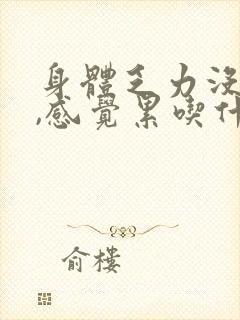 身體乏力沒
,感覺累喫什
俞樓